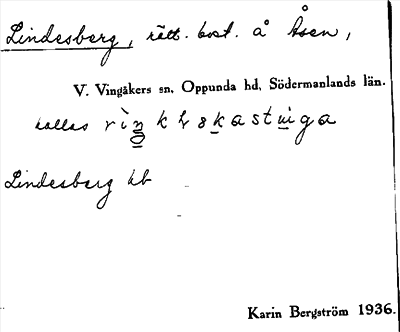 Lindesberg, rätt. bost. å Åsen,
V. Vingåkers sn. Oppunda hd, Södermanlands län.
kallas
Lindesberg hb
Karin Bergström 1936.